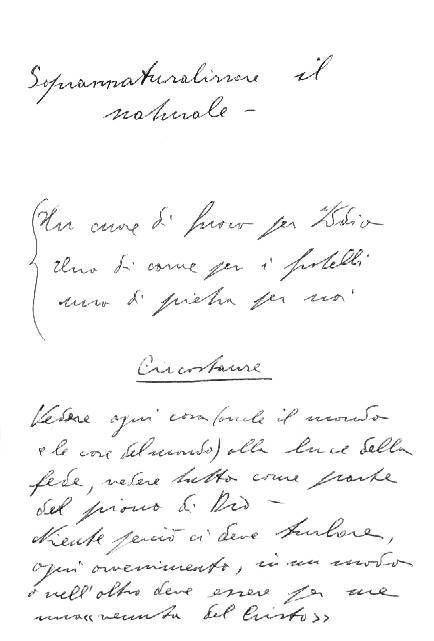 Soprannaturalizzare il
naturale -
Un cuore di fuoco per Iddio
Uno di carne per i fratelli
uno di pietra per noi
Circostanze
Vedere ogni cosa (anche il mondo
e le cose del mondo) alla luce della
fede, vedere tutto come parte
del piano di Dio -
Niente perciò ci deve turbare,
ogni avvenimento, in un modo
o nell'altro deve essere per me
una «venuta del Cristo»